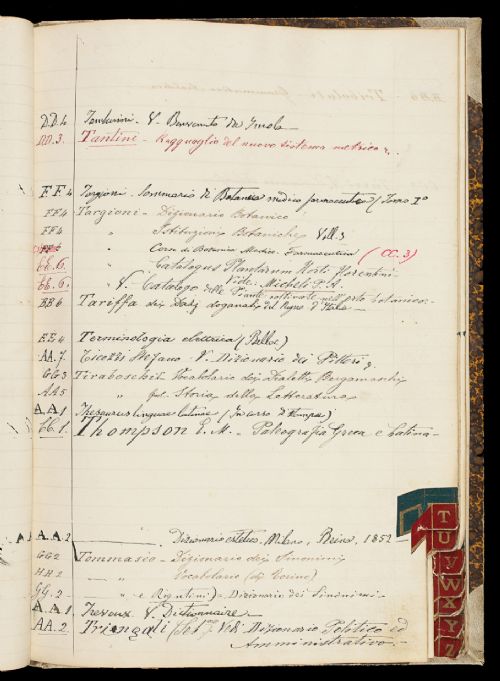 D.D. 4 Tamburini - V. Benvenuto da Imola
DD. 3. Tantini - Ragguaglio del nuovo sistema metrico
FF 4 Targioni - Sommario di Botanica medico farmaceutica (Tomo I°
FF 4 Targioni - Dizionario Botanico
FF 4 " Istituzioni Botaniche Voll. 3
" Corso di Botanica Medico-Farmaceutica (CC. 3)
EE. 6. " Catalogus Plantarum Horti Florentini
Vide. Micheli P. A.
EE. 6. " V. Catalogo delle Piante coltivate nell'orto botanico.
BB 6 Tariffa dei Dazj doganali del Regno d'Italia
EE 4 Terminologia elettrica (Belloc)
AA. 7. Ticozzi Stefano V. Dizionario dei Pittori
GG 3 Tiraboschi Vocabolario dei Dialetti Bergamaschi
AA 5 " Storia della Letteratura
A. A. 1 Thesaurus linguae latinae (In corso di stampa)
EE. 1. Thompson E. M. - Paleografia Greca e Latina
A. A. 2 Dizionario estetico. Milano, Reina, 1852
GG 2 Tommaseo - Dizionario dei Sinonimi
HH 2 — " Vocabolario (di Torino)
GG. 2 " e Rigutini) - Dizionario dei Sinonimi
A. A. 1 Trevoux V. Dictionnaire
AA. 2 Tringali (Set. Vedi Dizionario Politico ed
Amministrativo.
T
U
V
W
X
Y
Z